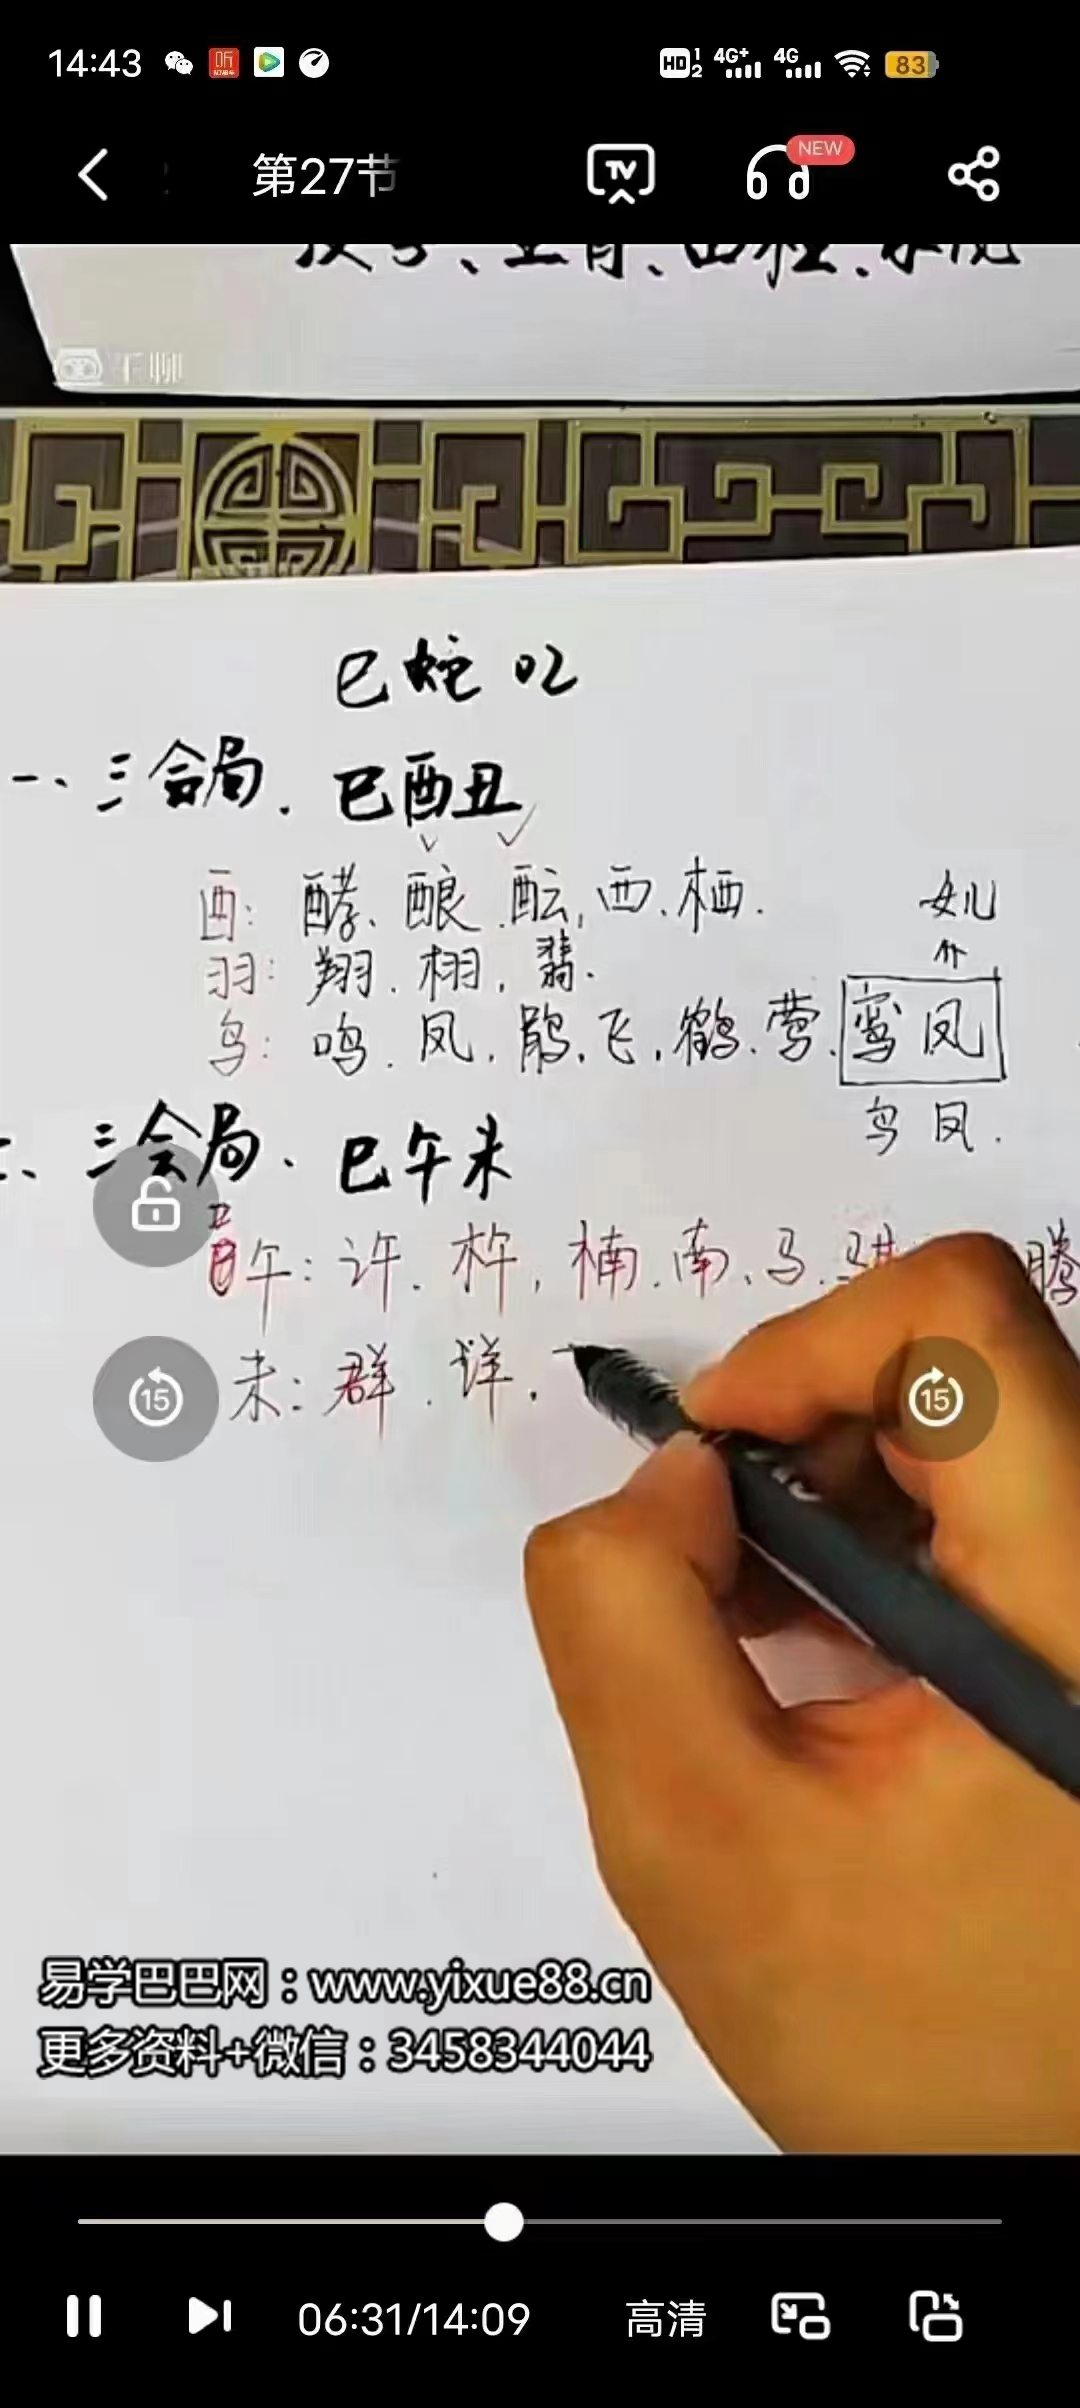 14:43
HD 1 2 4G+ 4G 83
第27节
NEW
千聊
巳蛇 02
一、三合局. 巳酉丑
酉: 酵、酿.酝,西.栖.
羽: 翔.栩,翡.
鸟: 鸣.凤.鹃.飞,鹤.莺.鸾凤
女儿
鸟凤.
、三会局、巳午未
午: 许.杵,楠.南、马.骐 腾
未: 群.详.
15
15
易学巴巴网:www.yixue88.cn
更多资料+微信:3458344044
06:31/14:09
高清